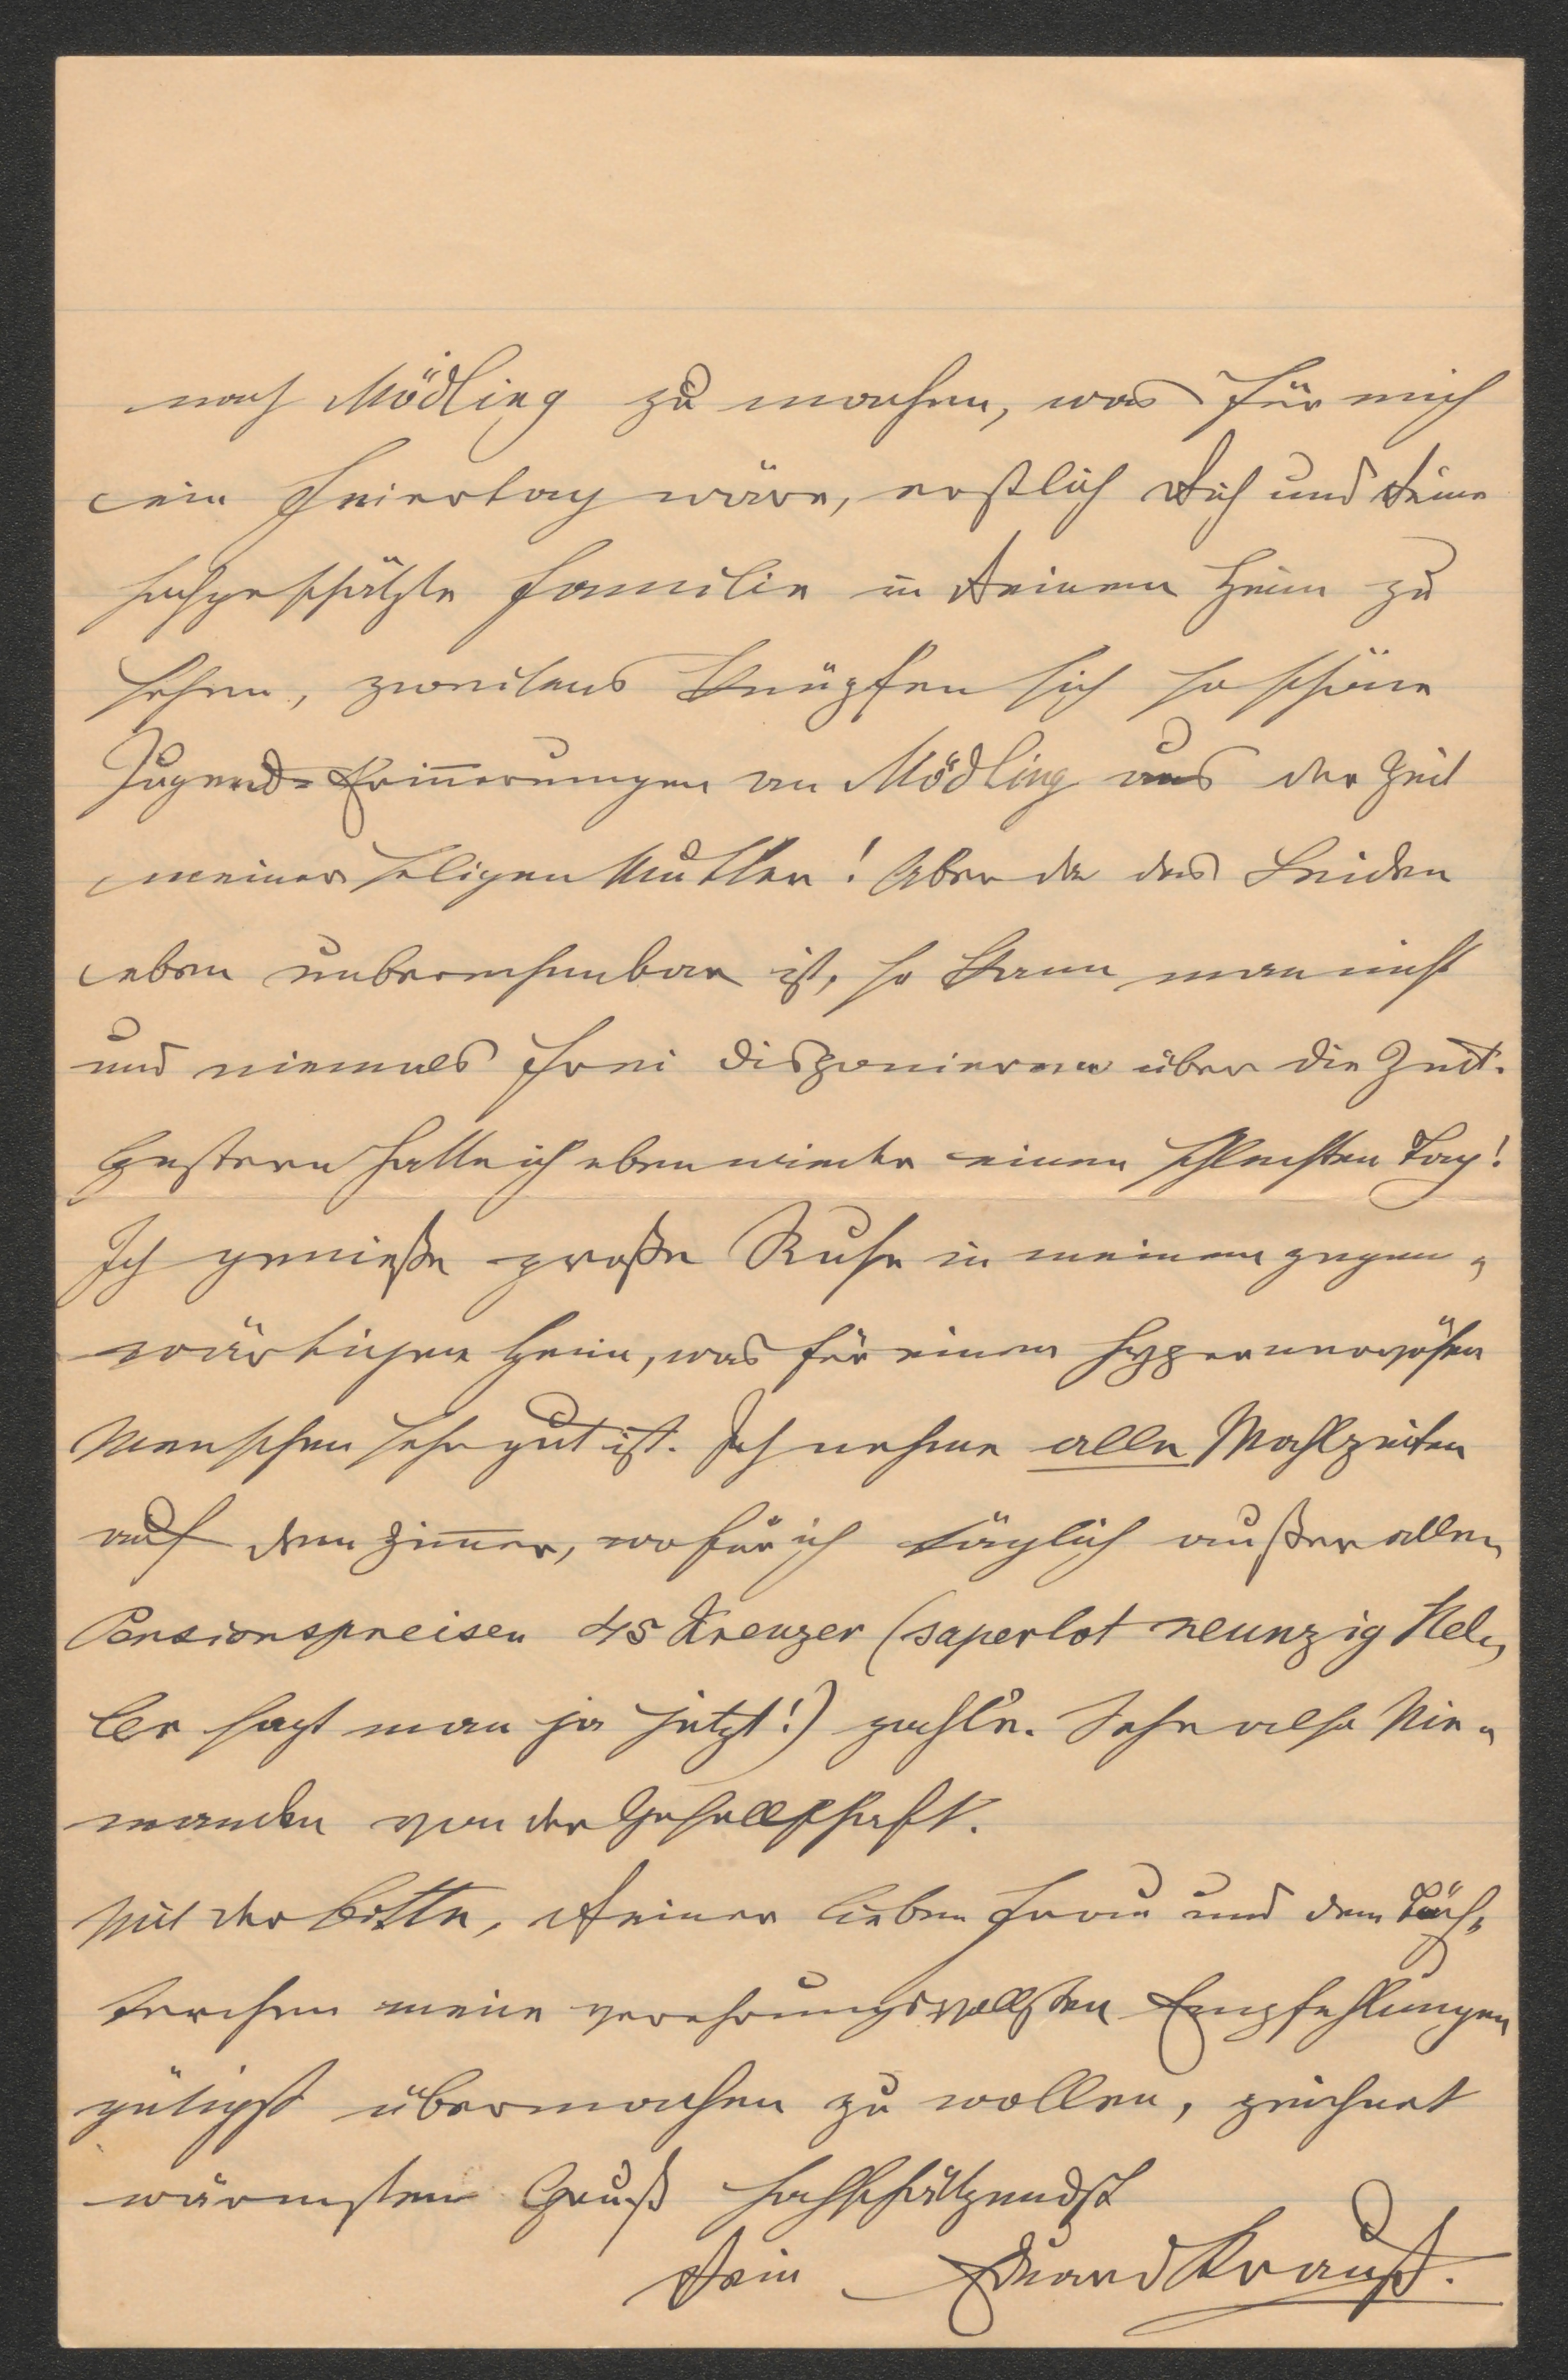 nach Mödling zu machen, was für mich
ein Feiertag wäre, erstlich Dich und Deine
hochgeschätzte Familie in Deinem Heim zu
sehen, zweitens knüpfen sich so schöne
Jugend-Erinnerungen an Mödling aus der Zeit
meiner seligen Mutter! Aber da das Leiden
eben unberechenbar ist, so kann man nicht
und niemals frei disponieren über die Zeit.
Gestern hatte ich eben wieder einen schlechten Tag!
Ich genieße große Ruhe in meinem gegen-
wärtigen Heim, was für einen hypernervösen
Menschen sehr gut ist. Ich nehme alle Mahlzeiten
auf dem Zimmer, wofür ich täglich außer allen
Pensionspreisen 45 Kreuzer (saperlot neunzig Hel-
ler sagt man ja jetzt!) zahle. Sehe also Nie-
manden von der Gesellschaft.
Mit der Bitte, Deiner lieben Frau und dem Töch-
terchen meine verehrungsvollsten Empfehlungen
gütigst übermachen zu wollen, zeichnet
wärmsten Gruß hochschätzendst
Dein Eduard Krauß.